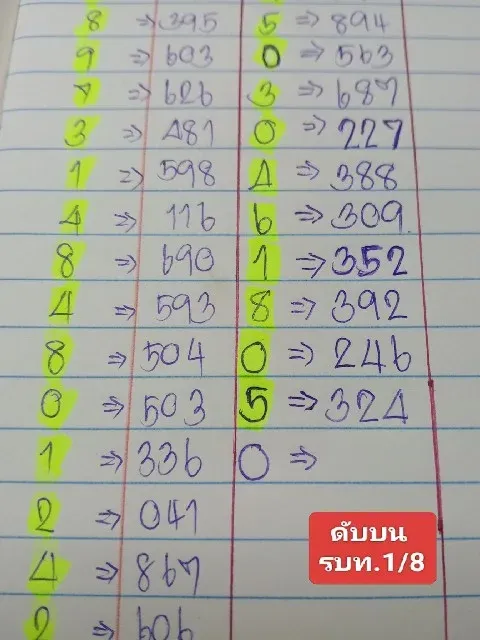 8 ⇒ 395
9 ⇒ 603
7 ⇒ 626
3 ⇒ 481
1 ⇒ 598
4 ⇒ 116
8 ⇒ 690
4 ⇒ 593
8 ⇒ 504
0 ⇒ 503
1 ⇒ 336
2 ⇒ 041
4 ⇒ 867
2 ⇒ 606
5 ⇒ 894
0 ⇒ 563
3 ⇒ 687
0 ⇒ 227
4 ⇒ 388
6 ⇒ 309
1 ⇒ 352
8 ⇒ 392
0 ⇒ 246
5 ⇒ 324
0 ⇒
ดับบน
รบท.1/8